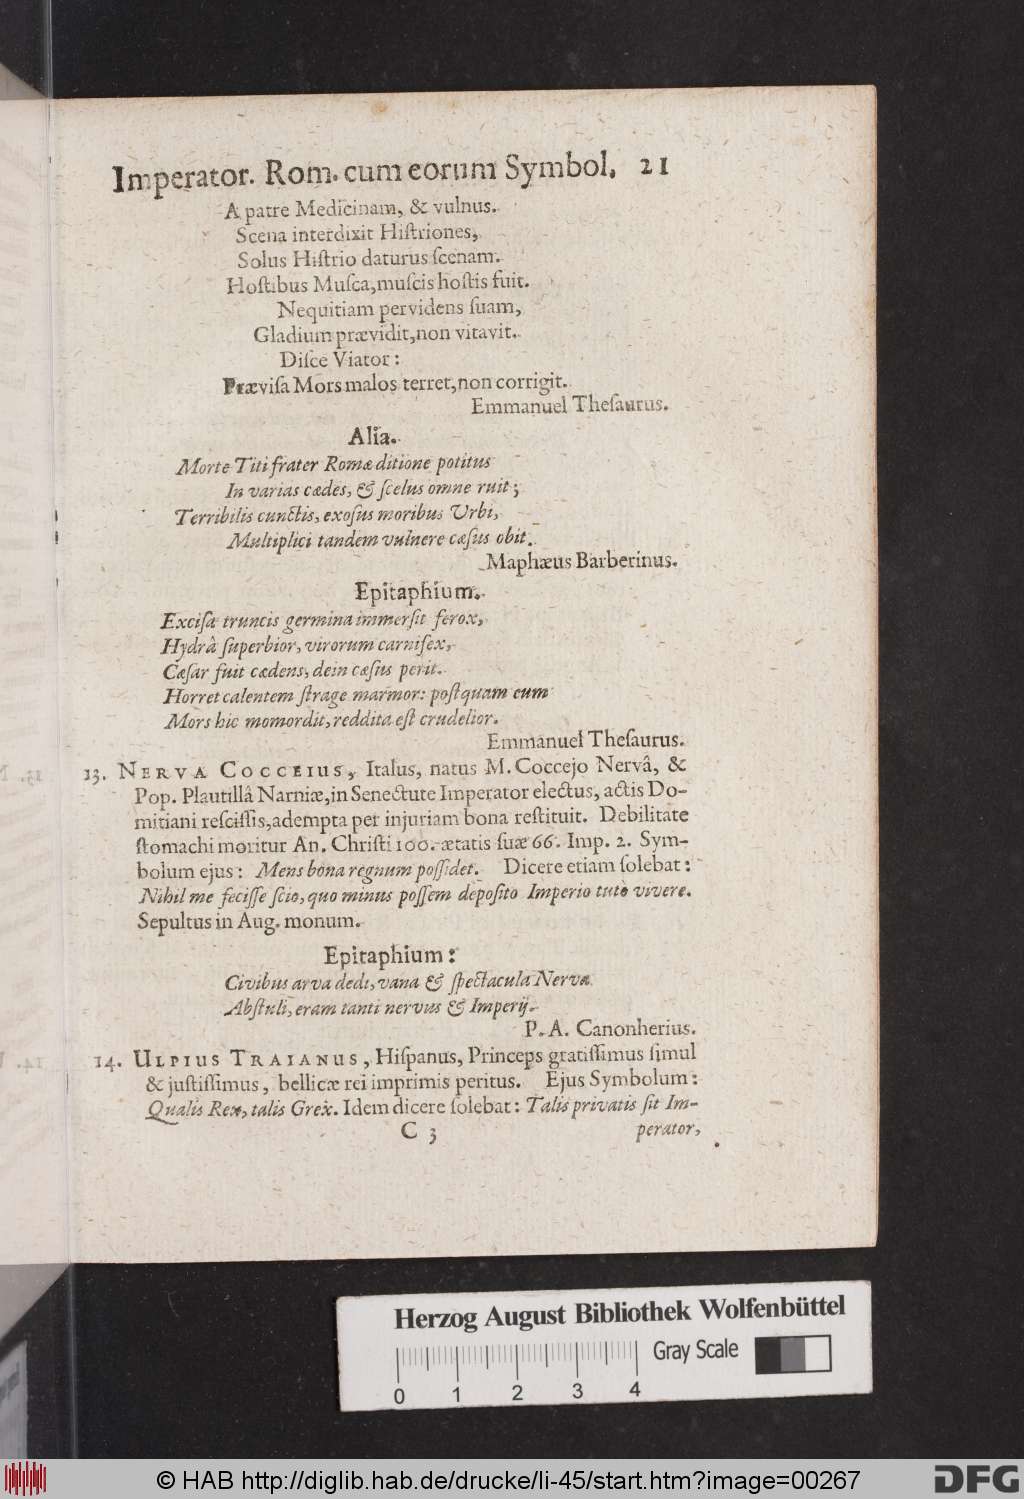 Imperator. Rom. cum eorum Symbol. 21
A patre Medicinam, & vulnus.
Scena interdixit Hiſtriones,
Solus Hiſtrio daturus ſcenam.
Hoſtibus Muſca, muſcis hoſtis fuit.
Nequitiam pervidens ſuam,
Gladium prævidit, non vitavit.
Diſce Viator:
Præviſa Mors malos terret, non corrigit.
Emmanuel Theſaurus.
Alia.
Morte Titi frater Romæ ditione potitus
In varias cædes, & ſcelus omne ruit;
Terribilis cunctis, exoſus moribus Urbi,
Multiplici tandem vulnere cæſus obit.
Maphæus Barberinus.
Epitaphium.
Exciſa truncis germina immerſit ferox,
Hydrâ ſuperbior, virorum carnifex,
Cæſar fuit cædens, dein cæſus perit.
Horret calentem ſtrage marmor: poſtquam eum
Mors hic momordit, reddita eſt crudelior.
Emmanuel Theſaurus.
13. NERVA COCCEIUS, Italus, natus M. Coccejo Nervâ, &
Pop. Plautillâ Narniæ, in Senectute Imperator electus, actis Do-
mitiani reſciſſis, adempta per injuriam bona reſtituit. Debilitate
ſtomachi moritur An. Chriſti 100. ætatis ſuæ 66. Imp. 2. Sym-
bolum ejus: Mens bona regnum poſſidet. Dicere etiam ſolebat:
Nihil me feciſſe ſcio, quo minus poſſem depoſito Imperio tuto vivere.
Sepultus in Aug. monum.
Epitaphium:
Civibus arva dedi, vana & ſpectacula Nerva
Abſtuli, eram tanti nervus & Imperij.
P. A. Canonherius.
14. ULPIUS TRAIANUS, Hiſpanus, Princeps gratiſſimus ſimul
& juſtiſſimus, bellicæ rei imprimis peritus. Ejus Symbolum:
Qualis Rex, talis Grex. Idem dicere ſolebat: Talis privatis ſit Im-
C 3 perator,
Herzog August Bibliothek Wolfenbüttel
Gray Scale
0 1 2 3 4
© HAB http://diglib.hab.de/drucke/li-45/start.htm?image=00267
DFG